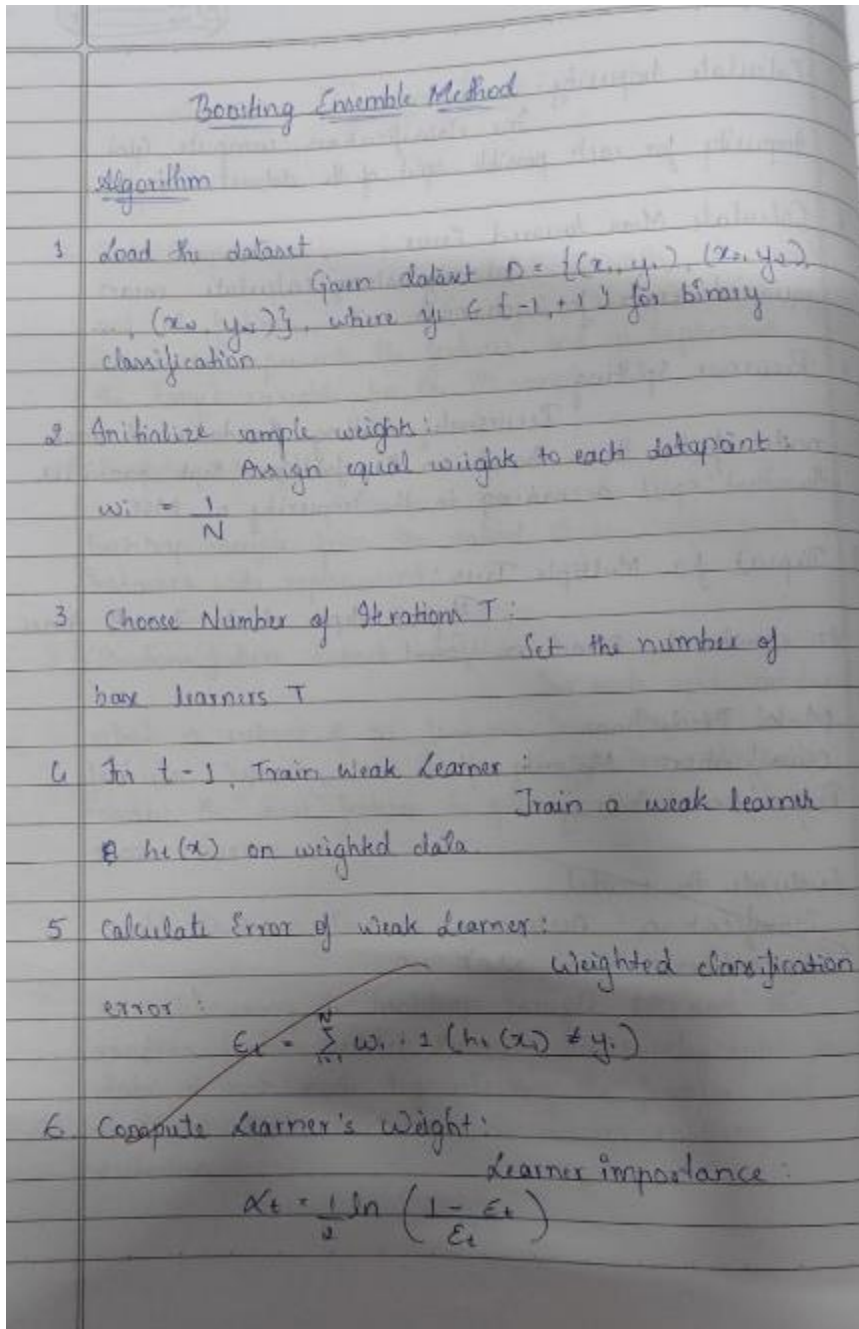 Boosting Ensemble Method
Algorithm
1 Load the dataset
Given dataset D = {(x1, y1), (x2, y2),
, (xN, yN)}, where yi ∈ {-1, +1} for binary
classification
2 Initialize sample weights:
Assign equal weights to each datapoint:
wi = 1/N
3 Choose Number of Iterations T:
Set the number of
base learners T
4 For t-1, Train Weak Learner:
Train a weak learner
ht(x) on weighted data.
5 Calculate Error of weak Learner:
Weighted classification
error:
Et = Σ(i=1 to N) wi · 1 (ht(xi) ≠ yi)
6. Compute Learner's Weight:
Learner importance:
αt = 1/2 ln ((1 - Et)/Et)